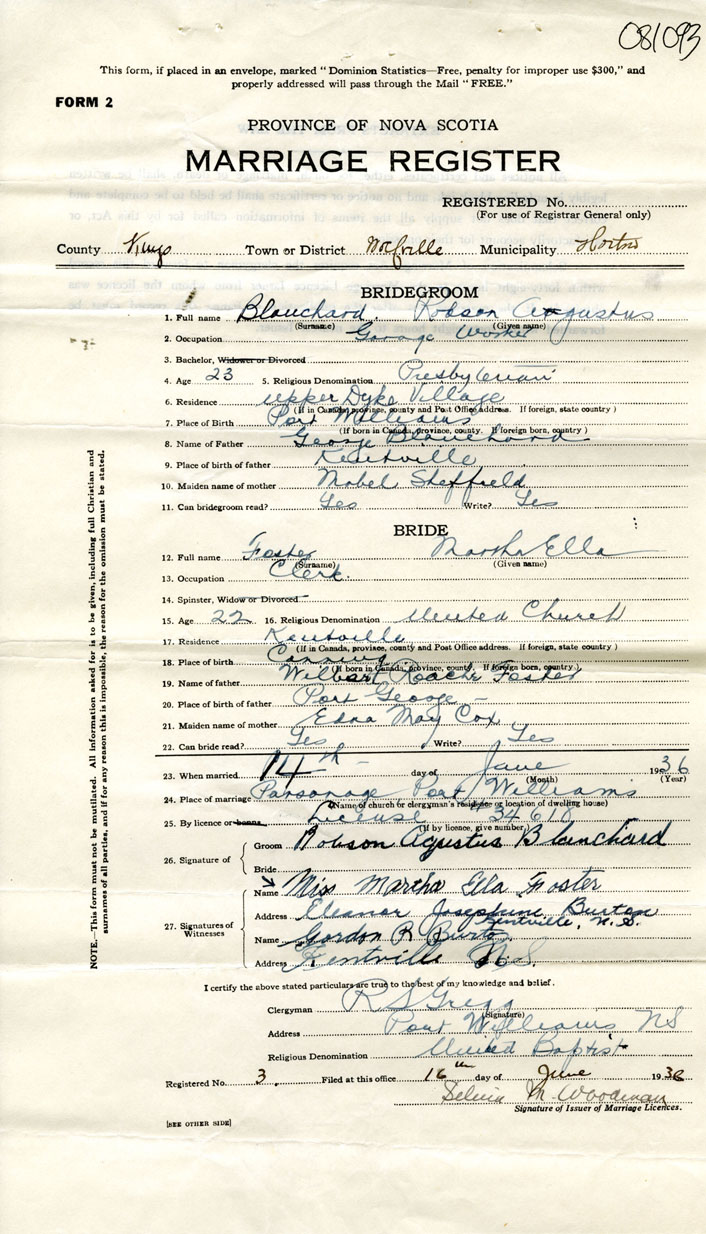 081093
This form, if placed in an envelope, marked "Dominion Statistics—Free, penalty for improper use $300," and
properly addressed will pass through the Mail "FREE."
FORM 2
PROVINCE OF NOVA SCOTIA
MARRIAGE REGISTER
REGISTERED No.
(For use of Registrar General only)
County Kings Town or District Wolfville Municipality Horton
BRIDEGROOM
1. Full name Blanchard Robson Augustus
(Surname) (Given name)
2. Occupation Garage Worker
3. Bachelor, Widower or Divorced
4. Age 23 5. Religious Denomination Presbyterian
6. Residence Upper Dyke Village
(If in Canada, province, county and Post Office address. If foreign, state country)
7. Place of Birth Port Williams
(If born in Canada, province, county. If foreign born, country)
8. Name of Father George Blanchard
9. Place of birth of father Kentville
10. Maiden name of mother Mabel Sheffield
11. Can bridegroom read? Yes Write? Yes
BRIDE
12. Full name Foster Martha Ella
(Surname) (Given name)
13. Occupation Clerk
14. Spinster, Widow or Divorced
15. Age 22 16. Religious Denomination United Church
17. Residence Kentville
(If in Canada, province, county and Post Office address. If foreign, state country)
18. Place of birth Canning
(If born in Canada, province, county. If foreign born, country)
19. Name of father Wilbert Foster
20. Place of birth of father Port George
21. Maiden name of mother Edna May Cox
22. Can bride read? Yes Write? Yes
23. When married 14th day of June 1936
(Month) (Year)
24. Place of marriage Parsonage Port Williams
(Name of church or clergyman's residence or location of dwelling house)
25. By licence or banns License 34610
(If by licence, give number)
26. Signature of
Groom Robson Agustus Blanchard
Bride
Miss Martha Ella Foster
27. Signatures of
Witnesses
Name
Address Eleanor Josephine Burton
Kentville, N.S.
Name Gordon R Burton
Address Kentville N.S.
I certify the above stated particulars are true to the best of my knowledge and belief.
Clergyman R S Gregg
(Signature)
Address Port Williams NS
Religious Denomination United Baptist
Registered No. 3. Filed at this office 16th day of June 1936
M. Woodman
Signature of Issuer of Marriage Licences.
[SEE OTHER SIDE]
NOTE.—This form must not be mutilated. All information asked for is to be given, including full Christian and
surnames of all parties, and if for any reason this is impossible, the reason for the omission must be stated.